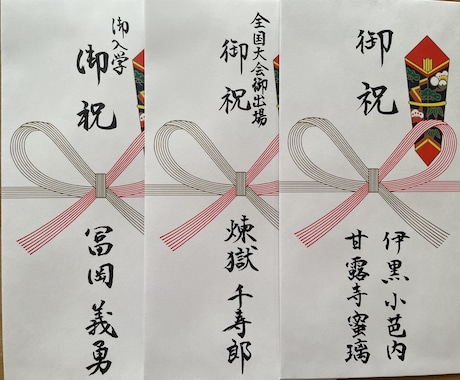 御入学
御祝
冨岡 義勇
全国大会御出場
御祝
煉獄 千寿郎
御祝
伊黒小芭内
甘露寺蜜璃